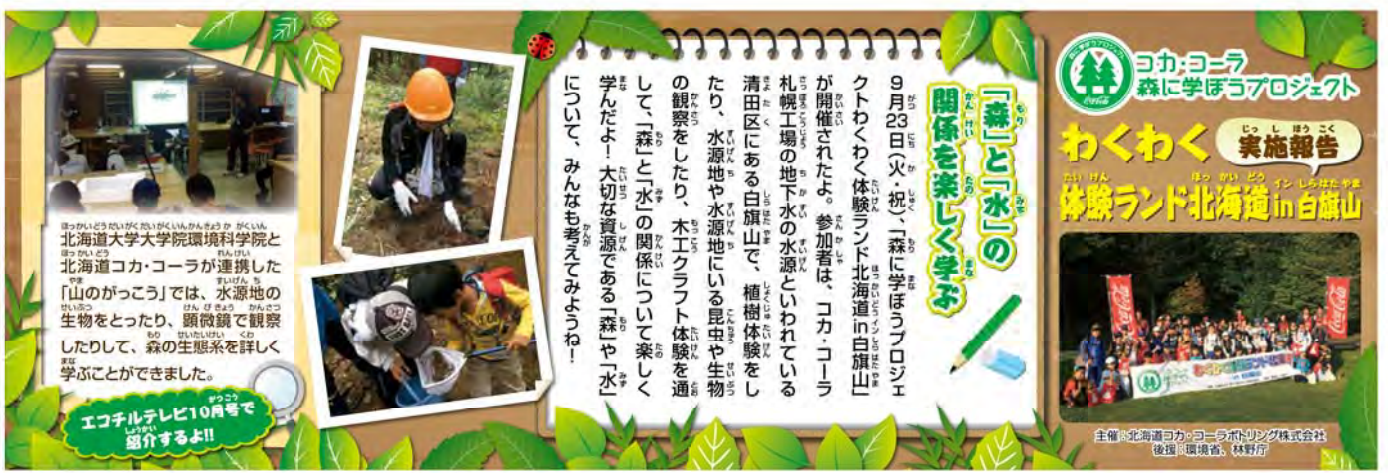 森に学ぼうプロジェクト
Coca-Cola
コカ・コーラ
森に学ぼうプロジェクト
わくわく
実施報告
体験ランド北海道in白旗山
Coca-Cola
Coca-Cola
わくわく体験ランド北海道
in 白旗山
主催:北海道コカ・コーラボトリング株式会社
後援:環境省、林野庁
「森」と「水」の
関係を楽しく学ぶ
9月23日(火・祝)、「森に学ぼうプロジェ
クトわくわく体験ランド北海道in白旗山」
が開催されたよ。参加者は、コカ・コーラ
札幌工場の地下水の水源といわれている
清田区にある白旗山で、植樹体験をし
たり、水源地や水源地にいる昆虫や生物
の観察をしたり、木工クラフト体験を通
して、「森」と「水」の関係について楽しく
学んだよ!大切な資源である「森」や「水」
について、みんなも考えてみようね!
北海道大学大学院環境科学院と
北海道コカ・コーラが連携した
「山のがっこう」では、水源地の
生物をとったり、顕微鏡で観察
したりして、森の生態系を詳しく
学ぶことができました。
エコチルテレビ10月号で
紹介するよ!!